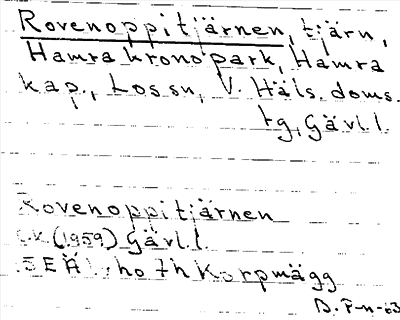 Rovenoppitjärnen, tjärn,
Hamra kronopark, Hamra
kap., Los sn, V. Häls. doms.
tg, Gävl.l.
Rovenoppitjärnen
(1959) Gävl.l.
5 E Ä ho 7h Korpmägg